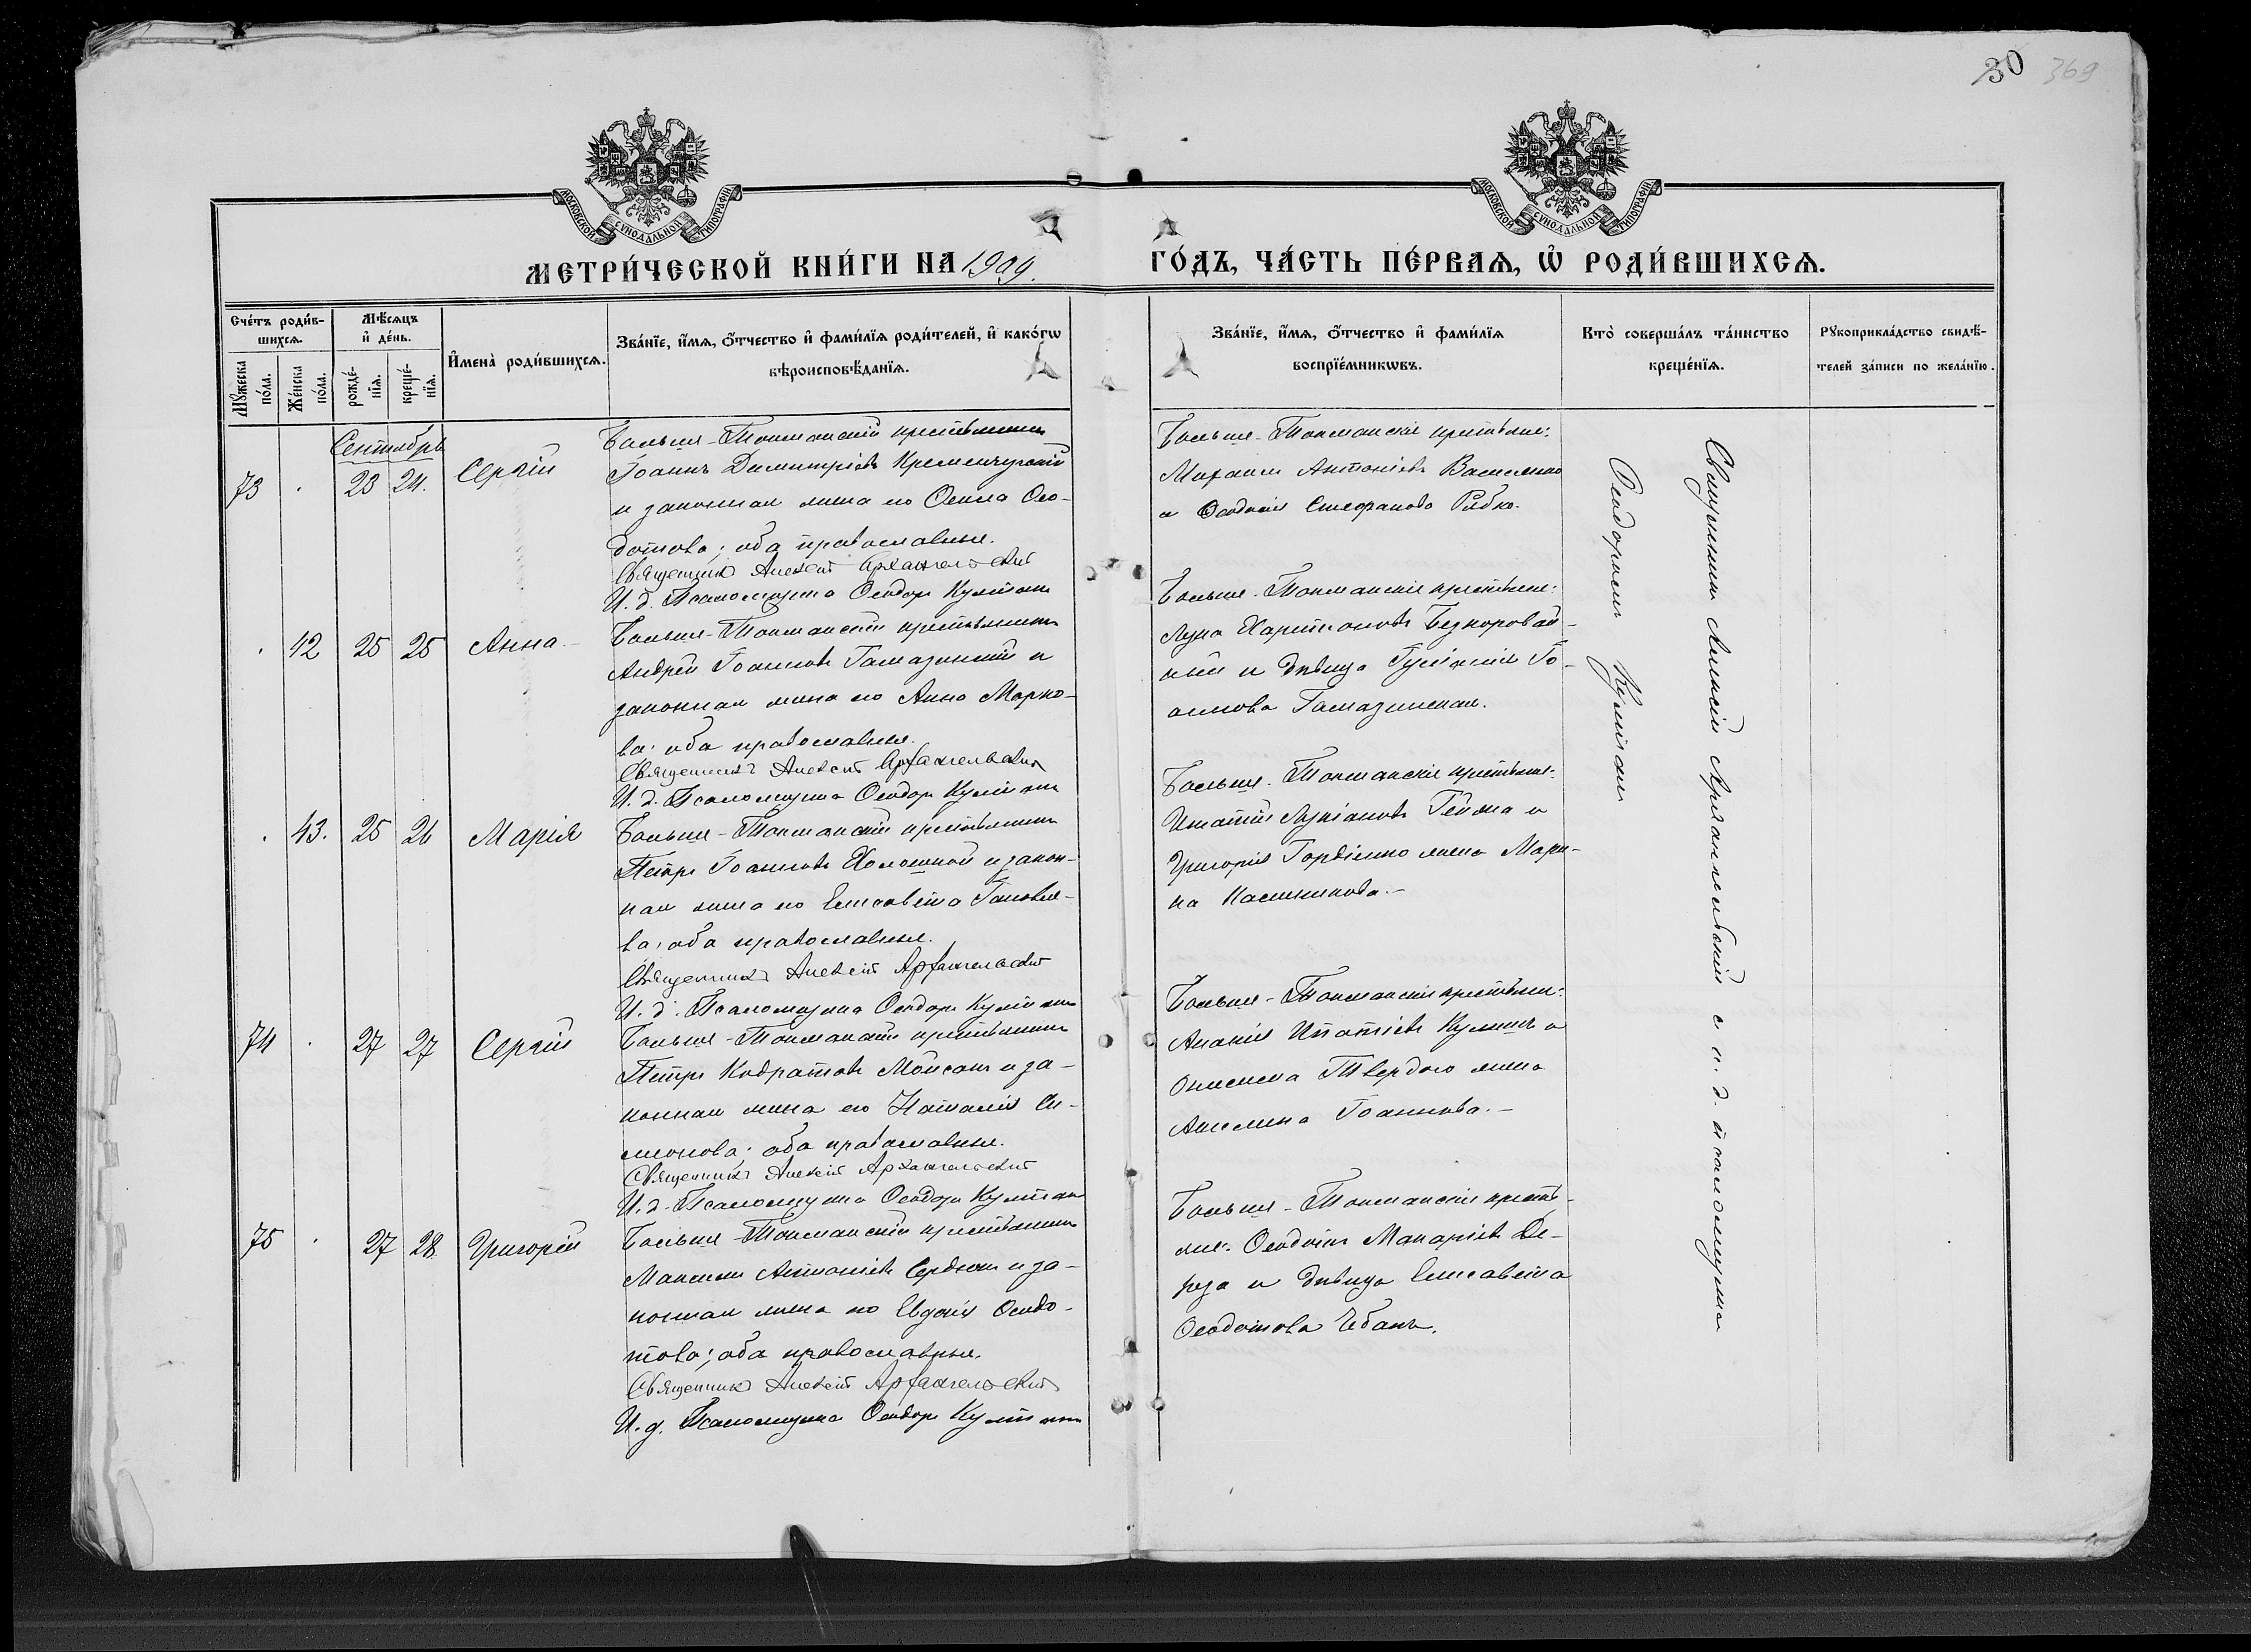 30 369
МОСКОВСКОЙ СУНОДАЛЬНОЙ ТИПОГРАФІИ
МОСКОВСКОЙ СУНОДАЛЬНОЙ ТИПОГРАФІИ
МЕТРИ́ЧЕСКОЙ КНИ́ГИ НА 1909.
ГО́ДЪ, ЧА́СТЬ ПЕ́РВАѦ, Ѡ҆ РОДИ́ВШИХСѦ.
Сче́тъ роди́в-
шихсѧ.
Мꙋ́жеска по́ла.
Же́нска по́ла.
Мѣ́сѧцъ
и҆ де́нь.
рожде́-
нїѧ.
креще́-
нїѧ.
И҆мена̀ роди́вшихсѧ.
Зва́нїе, и҆́мѧ, ѻ҆́тчество и҆ фами́лїѧ роди́телей, и҆ како́гѡ
вѣроисповѣ́данїѧ.
Зва́нїе, и҆́мѧ, ѻ҆́тчество и҆ фами́лїѧ
воспрїе́мникѡвъ.
Кто̀ соверша́лъ та́инство
креще́нїѧ.
Рꙋкоприкла́дство свидѣ́-
телей за́писи по жела́нїю.
Сентябрь
73 . 23 24. Сергій
Больше-Токмакскій крестьянинъ
Іоаннъ Димитріевъ Кременчугскій
и законная жена его Ѳекла Ѳео-
дотова; оба православные.
Священникъ Алексій Архангельскій
И. д. Псаломщика Ѳеодоръ
Больше-Токмакскіе крестьяне:
Михаилъ Антоніевъ Василенко
и Ѳеодосія Стефанова Рябко.
. 42 25 25 Анна
Больше-Токмакскій крестьянинъ
Андрей Іоанновъ Гамазинскій и
законная жена его Анна Марко-
ва; оба православные.
Священникъ Алексій Архангельскій
И. д. Псаломщика Ѳеодоръ
Больше-Токмакскіе крестьяне:
Лука Харитоновъ Безкоровай-
ный и дѣвица Гликерія Іо-
аннова Гамазинская.
. 43. 25 26 Марія
Больше-Токмакскій крестьянинъ
Петръ Іоанновъ Холошной и закон-
ная жена его Елисавета Іаковле-
ва; оба православные.
Священникъ Алексій Архангельскій
И. д. Псаломщика Ѳеодоръ
Больше-Токмакскіе крестьяне:
Игнатій Лукіановъ Гейма и
Григорія Гордіенко жена Мари-
на Калиникова.
74 . 27 27 Сергій
Больше-Токмакскій крестьянинъ
Петръ Кодратовъ Мойсакъ и за-
конная жена его Наталія Си-
монова; оба православные.
Священникъ Алексій Архангельскій
И. д. Псаломщика Ѳеодоръ
Больше-Токмакскіе крестьяне:
Ананія Игнатіевъ Кулишъ и
Онисима Твердого жена
Акилина Іоаннова.
75 . 27 28 Григорій
Больше-Токмакскій крестьянинъ
Максимъ Антоніевъ Сердюкъ и за-
конная жена его Евдокія Ѳеодо-
това; оба православные.
Священникъ Алексій Архангельскій
И. д. Псаломщика Ѳеодоръ
Больше-Токмакскіе кресть-
яне: Ѳеодосій Макаріевъ Де-
реза и дѣвица Елисавета
Ѳеодотова Чебанъ.
Священникъ Алексій Архангельскій с и. д. псаломщика
Ѳеодоромъ